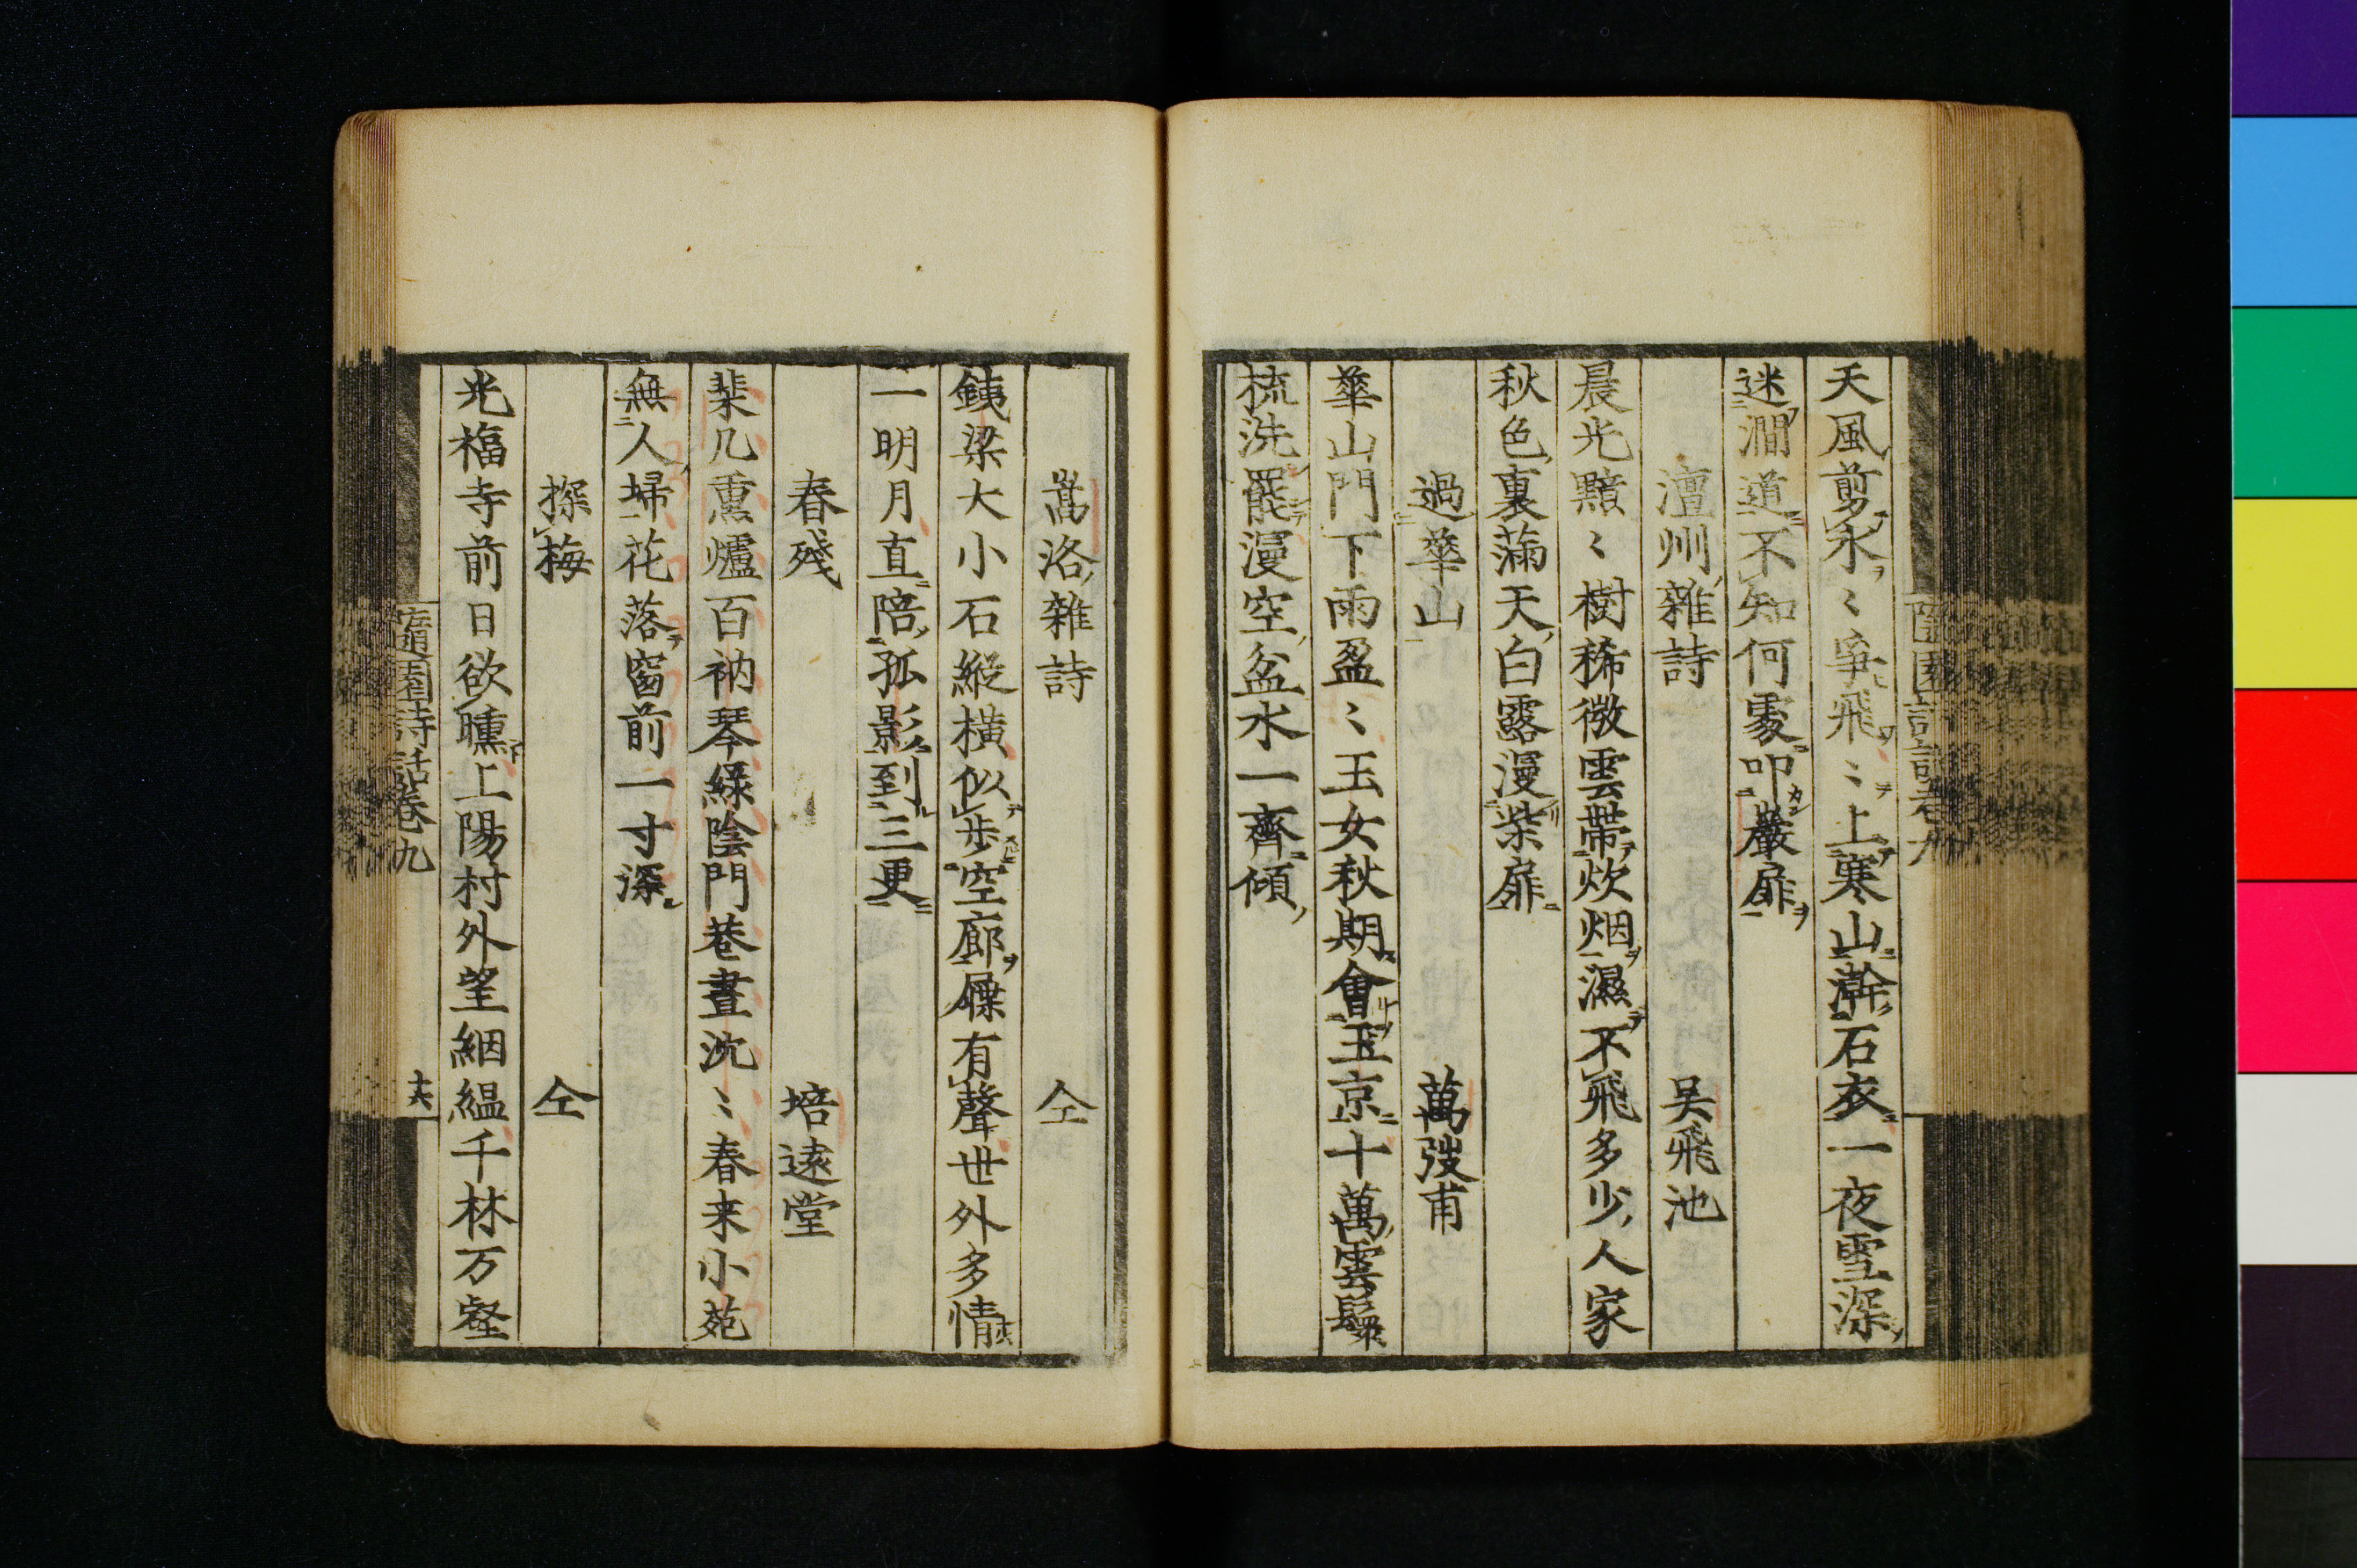 天風剪水〻爭飛〻上寒山澣石衣一夜雪深
迷澗道不知何處叩巖扉
澶州雜詩 吴飛池
晨光黯〻樹稀微雲帶炊烟濕不飛多少人家
秋色裏滿天白露漫柴扉
過華山 萬弢甫
華山門下雨盈〻玉女秋期會玉京十萬雲鬟
梳洗罷漫空盆水一齊傾
嵩洛雜詩 仝
銕梁大小石縱橫似步空廊屧有聲世外多情
一明月直陪孤影到三更
春殘 培遠堂
棐几熏爐百衲琴綠陰門巷晝沈〻春来小苑
無人埽花落窗前一寸深
探梅 仝
光福寺前日欲曛上陽村外望絪縕千林万壑
隨園詩話卷九
十六